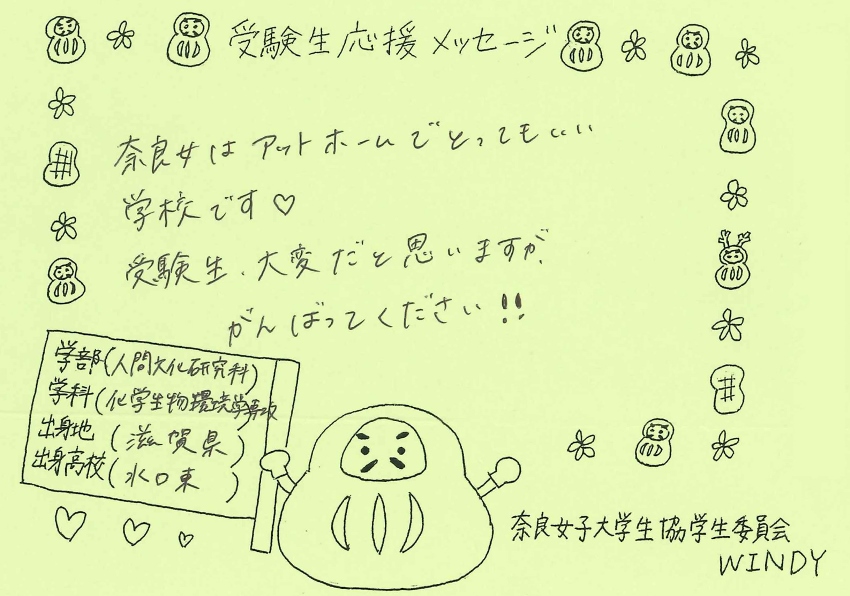 受験生応援メッセージ
奈良女はアットホームでとってもいい
学校です♡
受験生、大変だと思いますが、
がんばってください!!
学部(人間文化研究科)
学科(化学生物環境学専攻
出身地(滋賀県)
出身高校(水口東)
奈良女子大学生協学生委員会
WINDY